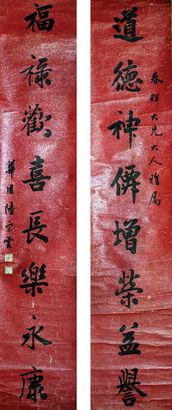 道德神僊增榮益譽
春程大兄大人雅屬
福祿歡喜長樂永康
華溪陸宗雲